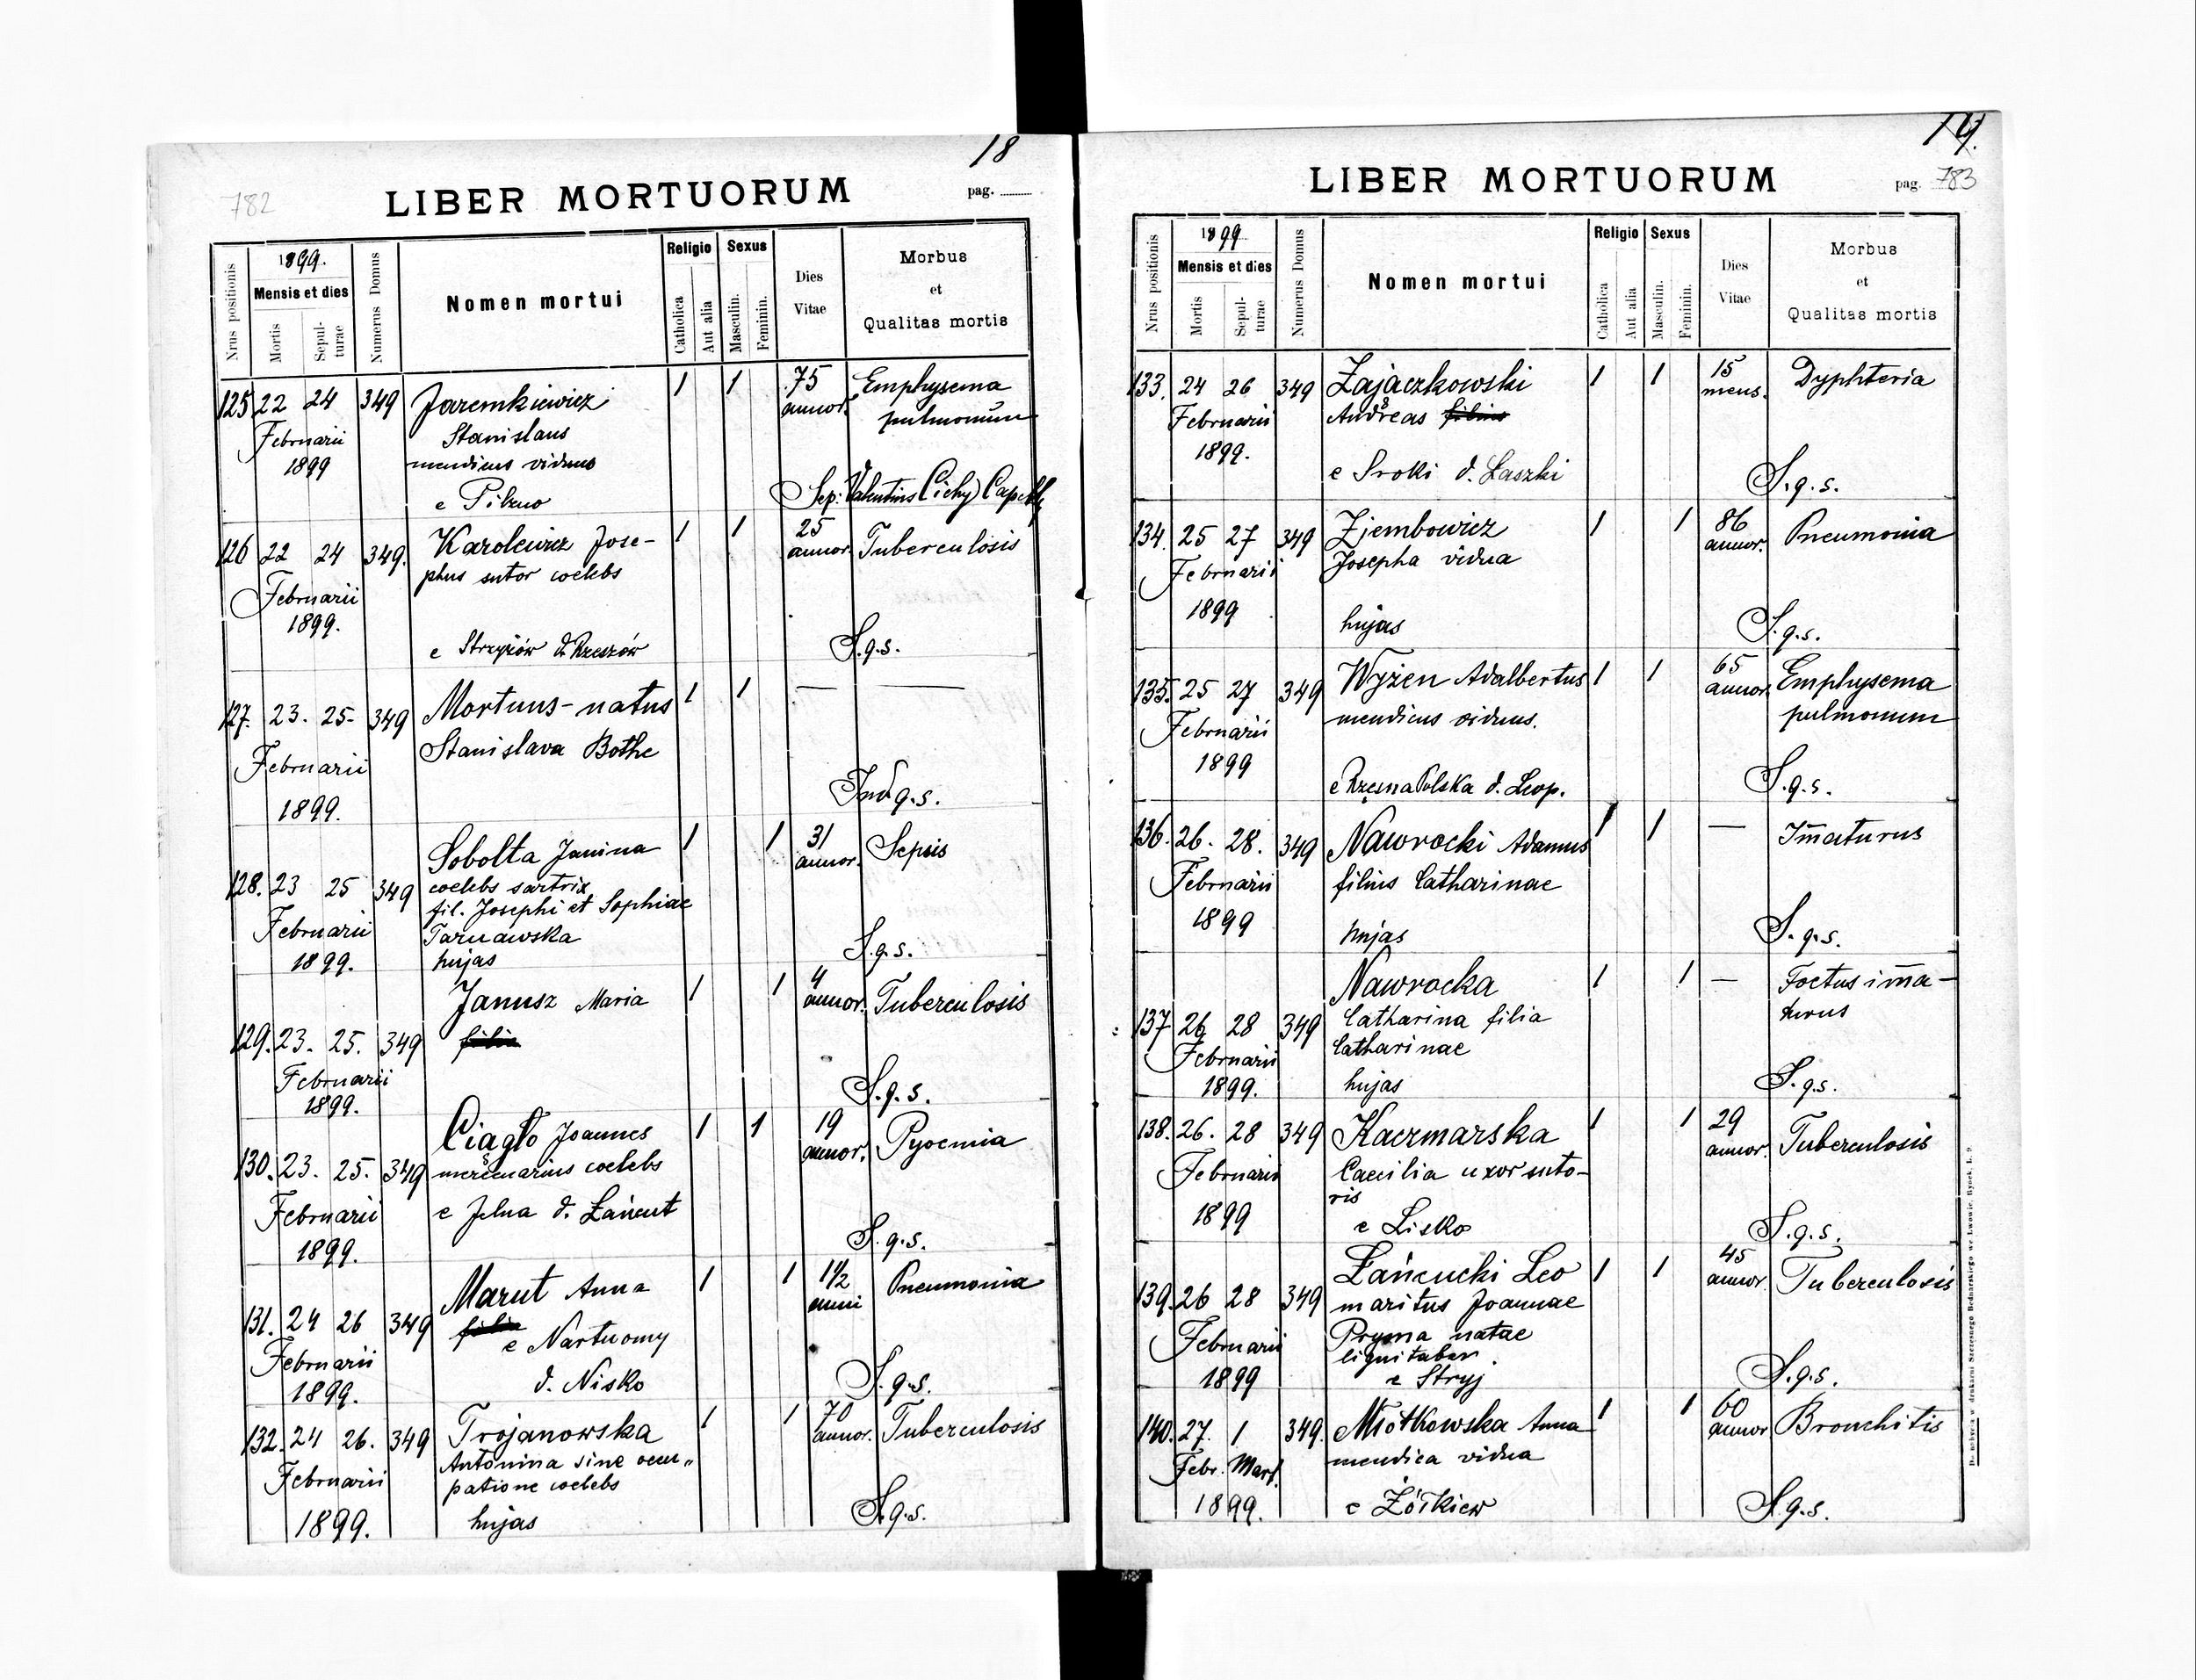 18
782
LIBER MORTUORUM
pag.
Nrus positionis
1899.
Mensis et dies
Mortis
Sepul-
turae
Numerus Domus
Nomen mortui
Religio
Catholica
Aut alia
Sexus
Masculin.
Feminin.
Dies
Vitae
Morbus
et
Qualitas mortis
125 22 24 349 Jaremkiewicz 1 1 75 Emphysema
Februarii Stanislaus annor. pulmonum
1899 mendicus viduus
e Pilzno Sep: Valentinus Cichy Capell
126 22 24 349. Karolewicz Jose- 1 1 25 Tuberculosis
phus sutor coelebs annor.
Februarii
1899.
e Strzyżów d. Rzeszów S.q.s.
127. 23. 25. 349 Mortuus-natus 1 1 — —
Stanislava Bothe
Februarii
1899. Ind q.s.
128. 23 25 349 Sobolta Janina 1 1 31 Sepsis
coelebs sartrix annor.
fil. Josephi et Sophiae
Februarii Tarnawska
1899. hujas S.q.s.
129. 23. 25. 349 Janusz Maria 1 1 4 Tuberculosis
filia annor.
Februarii
1899. S.q.s.
130. 23. 25. 349 Ciągło Joannes 1 1 19 Pyoemia
mercenarius coelebs annor.
Februarii e Jelna d. Łańcut
1899. S.q.s.
131. 24 26 349 Marut Anna 1 1 1 1/2 Pneumonia
filia e Nartuomy anni
Februarii
1899. d. Nisko S.q.s.
132. 24 26. 349 Trojanowska 1 1 70 Tuberculosis
Antonina sine occu„ annor.
Februarii patione coelebs
1899. hujas S.q.s.
19.
LIBER MORTUORUM
pag. 783
Nrus positionis
1899
Mensis et dies
Mortis
Sepul-
turae
Numerus Domus
Nomen mortui
Religio
Catholica
Aut alia
Sexus
Masculin.
Feminin.
Dies
Vitae
Morbus
et
Qualitas mortis
133. 24 26 349 Zajączkowski 1 1 15 Dyphteria
Februarii Andreas filius mens.
1899.
e Sroki d. Laszki S.q.s.
134. 25 27 349 Zjembowicz 1 1 86 Pneumonia
Februarii Josepha vidua annor.
1899 hujas S.q.s.
135. 25 27 349 Wyżen Adalbertus 1 1 65 Emphysema
Februarii mendicus viduus. annor. pulmonum
1899 e Rzęsna Polska d. Leop. S.q.s.
136. 26. 28. 349 Nawrocki Adamus 1 1 — Im̄aturus
Februarii filius Catharinae
1899 hujas S.q.s.
137 26 28 349 Nawrocka 1 1 — Foetus im̄a-
Catharina filia turus
Februarii Catharinae
1899. hujas S.q.s.
138. 26. 28 349 Kaczmarska 1 1 29 Tuberculosis
Februarii Caecilia uxor suto- annor.
ris
1899 e Lisko S.q.s.
139. 26 28 349 Łańcucki Leo 1 1 45 Tuberculosis
maritus Joannae annor.
Februarii Pryma natae
lignifaber.
1899 e Stryj S.q.s.
140. 27. 1 349. Młotkowska Anna 1 1 60 Bronchitis
Febr. Mart. mendica vidua annor
1899. e Żółkiew S.q.s.
Do nabycia w drukarni Szczęsnego Bednarskiego we Lwowie, Rynek, L. 9.